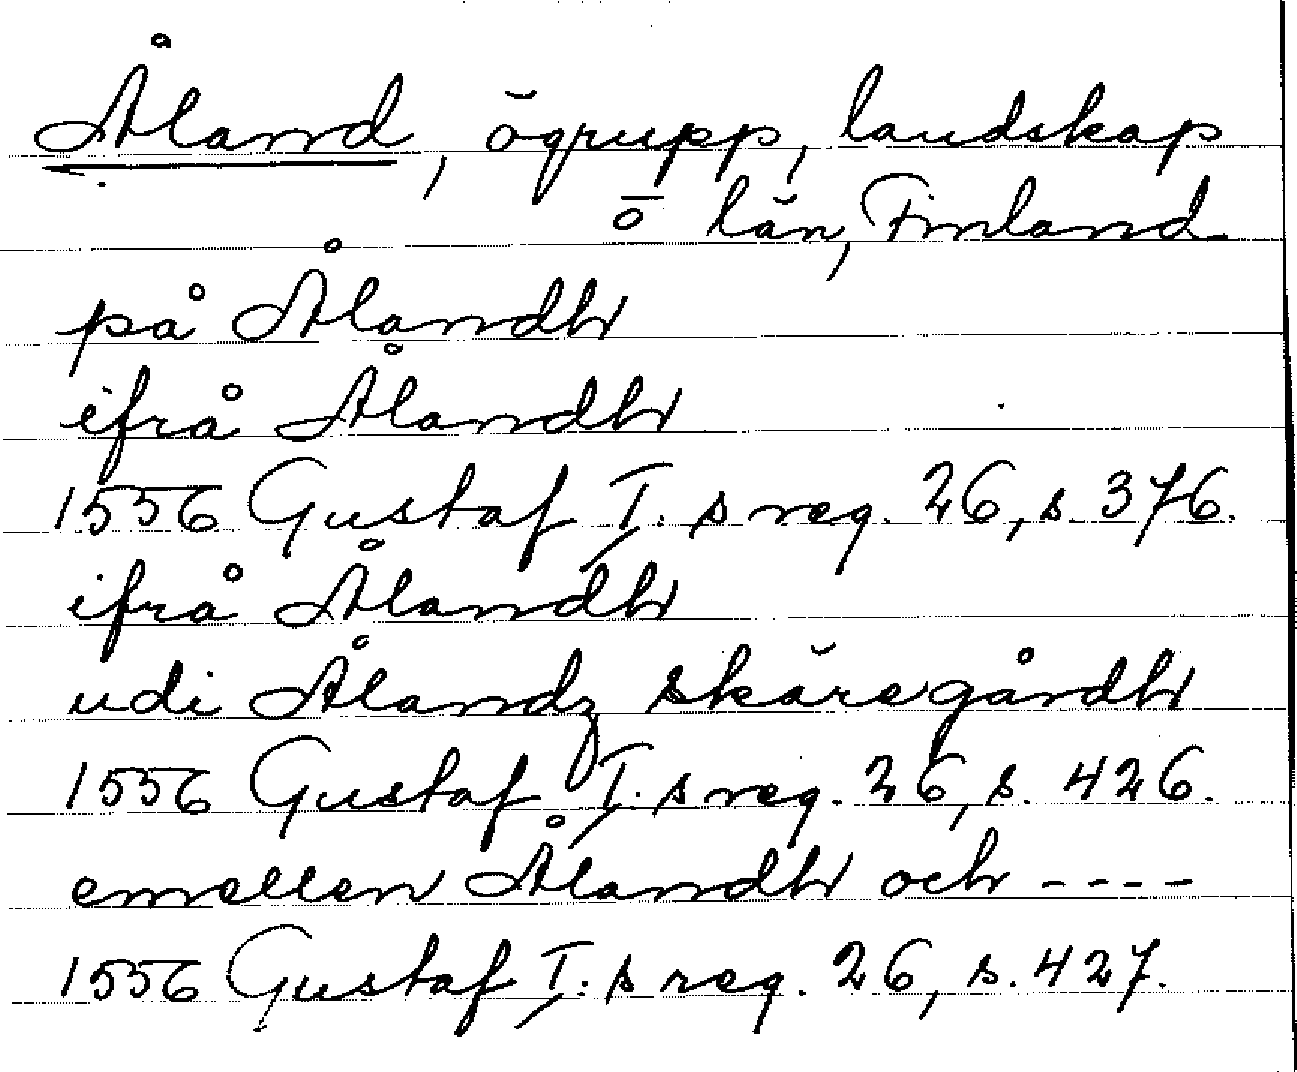 Åland, ögrupp, landskap
o län, Finland
på Ålandh
ifrå Ålandh
1556 Gustaf I:s reg. 26, s. 376.
ifrå Ålandh
udi Ålandz skäregårdh
1556 Gustaf I:s reg. 26, s. 426.
emellen Ålandh och ----
1556 Gustaf I:s reg. 26, s. 427.